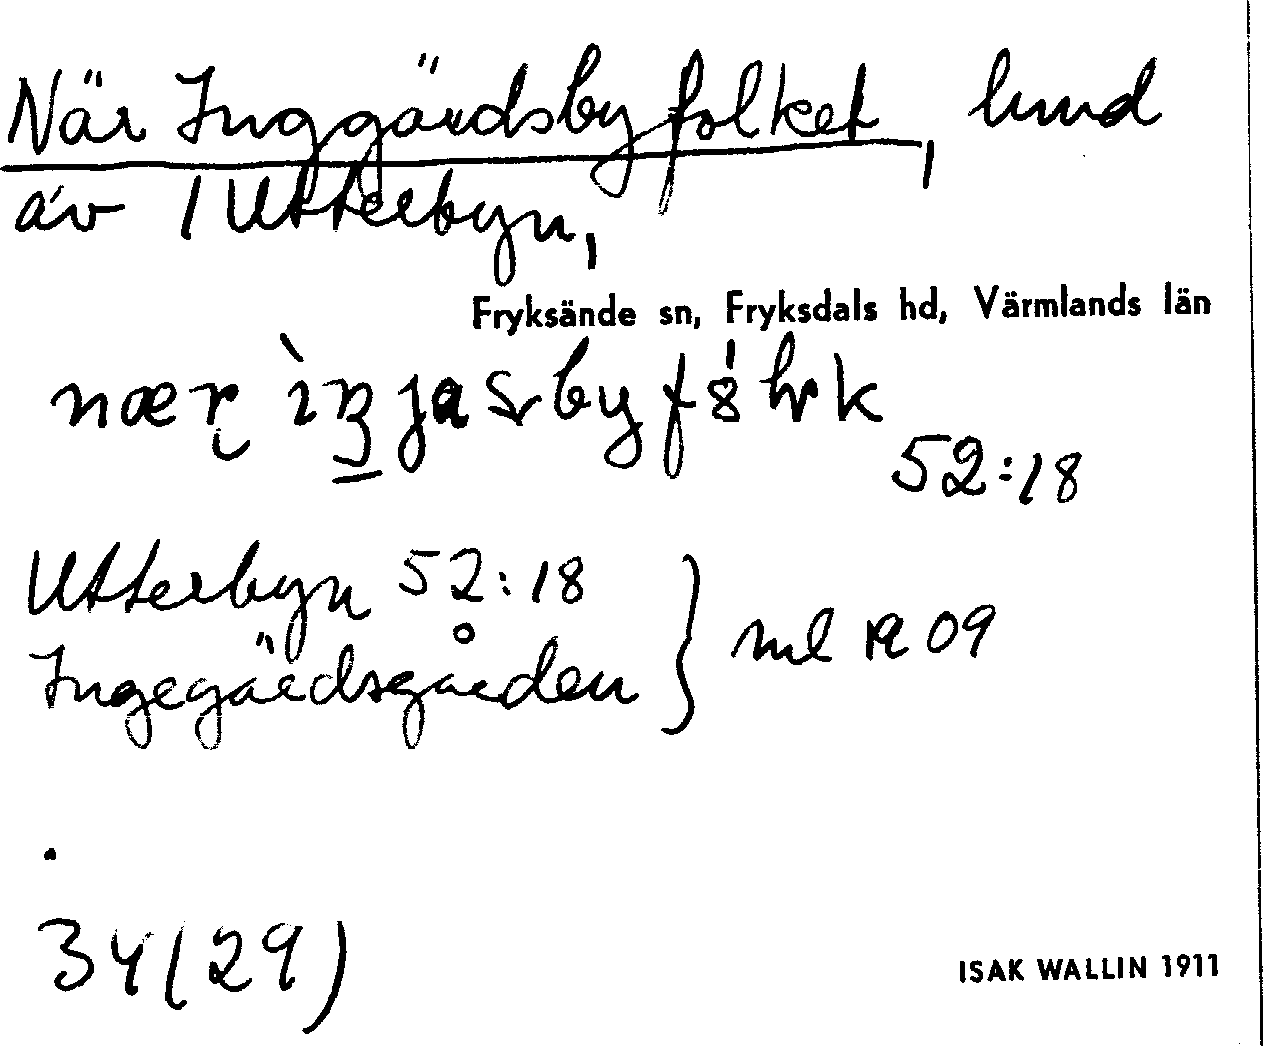 När Inggärdsbyfolket, lund
av 1 Utterbyn,
Fryksände sn, Fryksdals hd, Värmlands län
52:18
Utterbyn 52:18
Ingegärdsgården } ml 1909
34(29)
ISAK WALLIN 1911